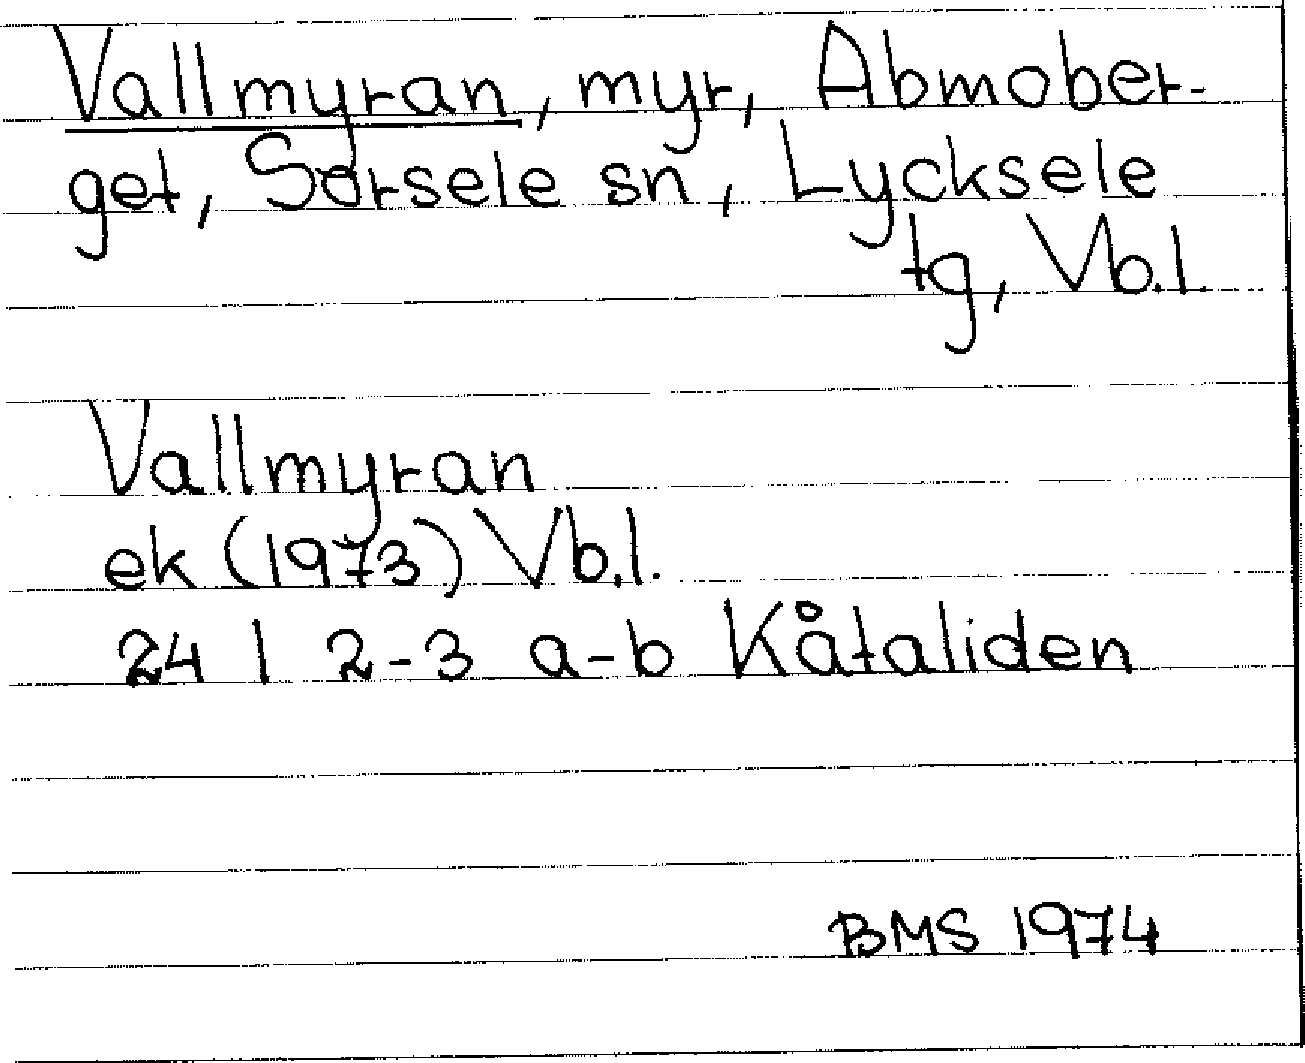 Vallmyran, myr, Abmober-
get, Sorsele sn, Lycksele
tg, Vb.l.
Vallmyran
ek (1973) Vb.l.
24 I 2-3 a-b Kåtaliden
BMS 1974